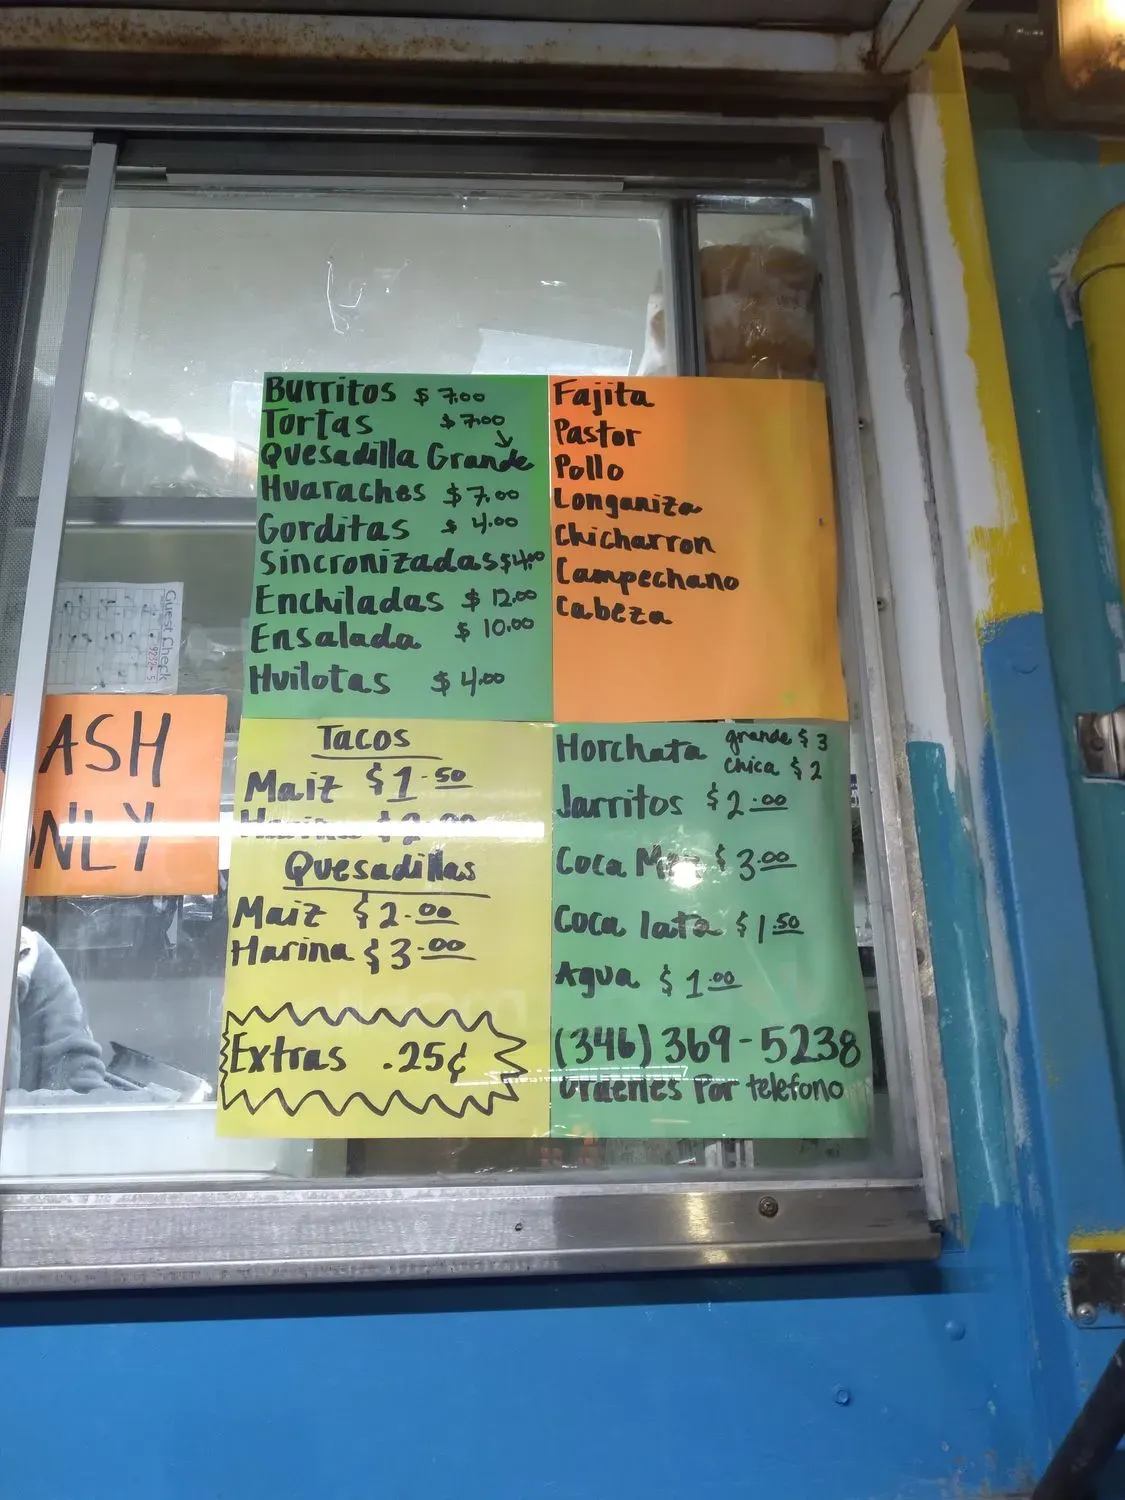 Burritos $7.00
Tortas $7.00
Quesadilla Grande
Huaraches $7.00
Gorditas $4.00
Sincronizadas $4.00
Enchiladas $12.00
Ensalada $10.00
Huilotas $4.00
Fajita
Pastor
Pollo
Longaniza
Chicharron
Campechano
Cabeza
Guest Check
ASH
NLY
Tacos
Maiz $1.50
Harina $2.00
Quesadillas
Maiz $2.00
Harina $3.00
Extras .25¢
Horchata grande $3
chica $2
Jarritos $2.00
Coca $3.00
Coca lata $1.50
Agua $1.00
(346) 369-5238
Ordenes Por telefono